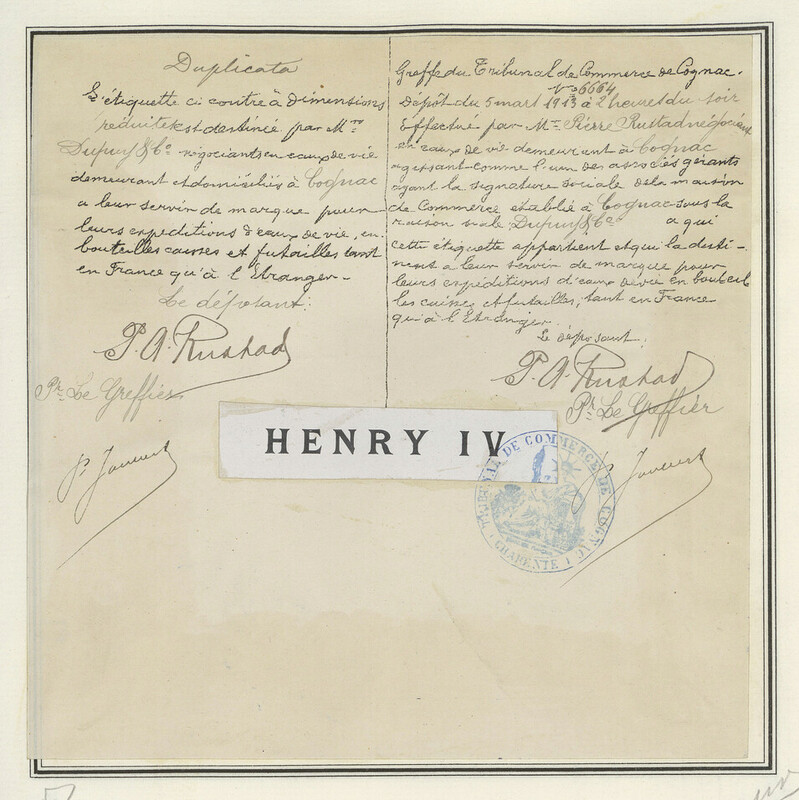 Duplicata
L'étiquette ci contre à dimensions
réduites est destinée par Mrs
Dupuy & Co négociants en eaux de vie
demeurant et domiciliés à Cognac
a leur servir de marque pour
leurs expéditions d'eaux de vie, en
bouteilles caisses et futailles tant
en France qu'à l'Étranger.
Le déposant:
P. A. Rustad
Pr. Le Greffier
Greffe du Tribunal de Commerce de Cognac.
No 6664
Dépôt du 5 mars 1913 à 2 heures du soir
Effectué par Mr. Pierre Rustad négociant
en eaux de vie demeurant à Cognac
agissant comme l'un des associés gérants
ayant la signature sociale de la maison
de Commerce établie à Cognac sous la
raison sociale Dupuy & Co a qui
cette étiquette appartient et qui la desti-
nent a leur servir de marque pour
leurs expéditions d'eaux de vie en bouteil
les caisses et futailles, tant en France
qu'à l'Étranger.
Le déposant:
P. A. Rustad
Pr. Le Greffier
HENRY IV
TRIBUNAL DE COMMERCE DE COGNAC
CHARENTE